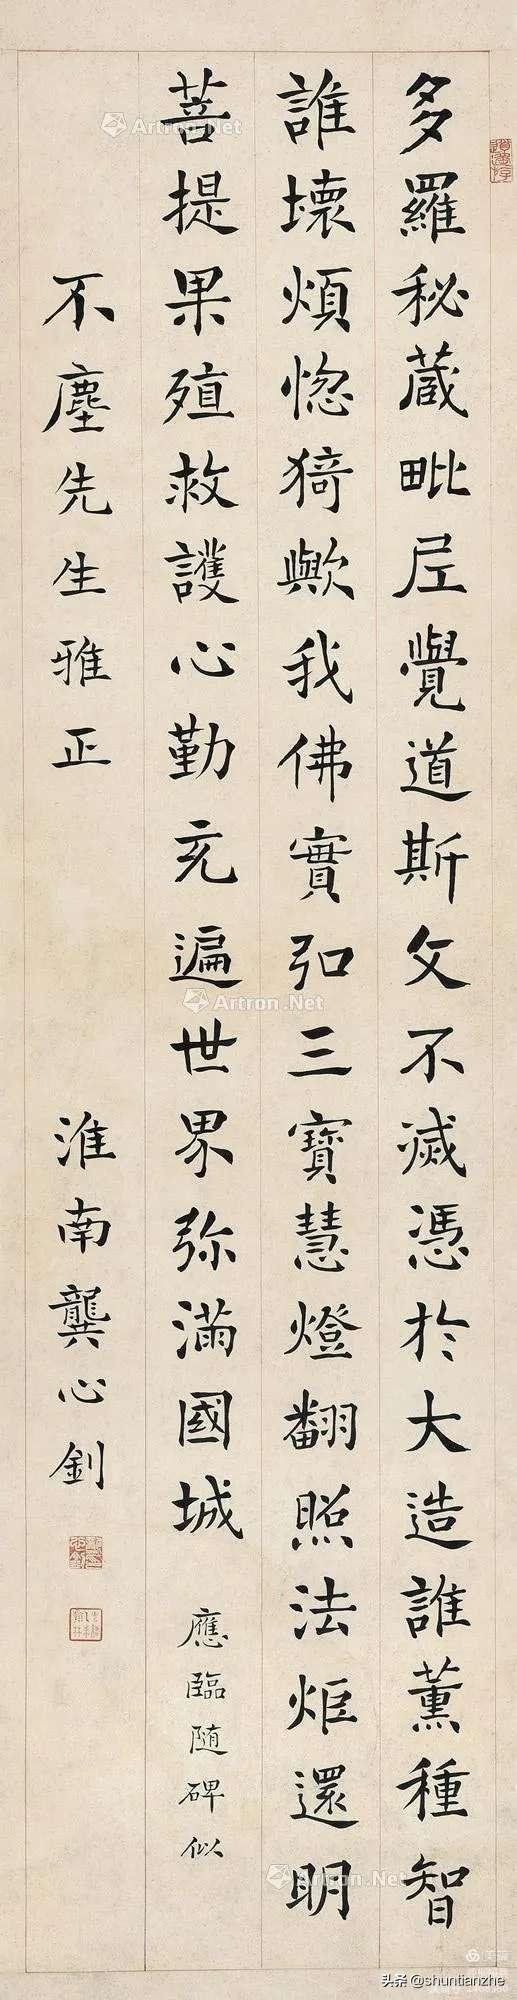 多羅秘蔵毗尼覺道斯文不滅憑於大造誰薰種智
誰壞煩惚猗歟我佛實弘三寶慧燈翻照法炬還明
菩提果殖救護心勤充遍世界弥滿國城 應臨随碑似
不塵先生雅正 淮南龔心釗
Artron.Net
Artron.Net
Artron.Net
美篇
头条 @shuntianzhe